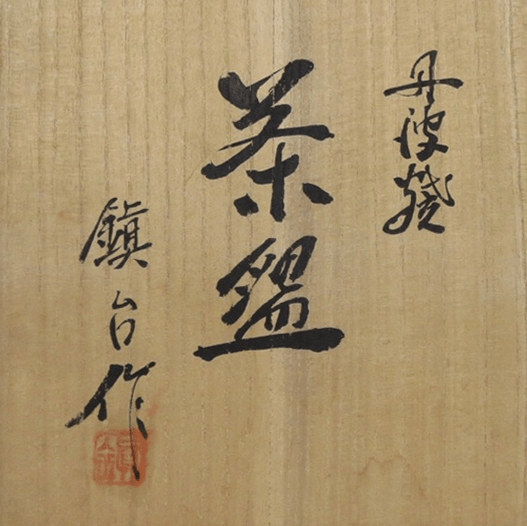 丹波焼
茶盌
鎮台作